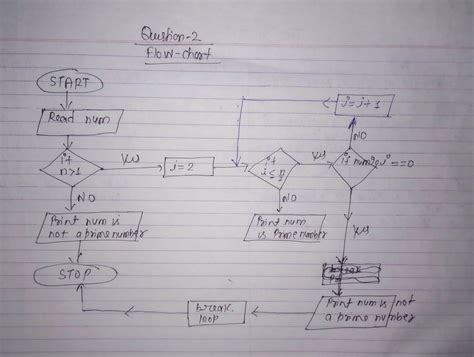 Question-2
Flow-chart
START
Read num
if
n>1
Yes
i=2
if
Yes
if num%i==0
i=i+1
NO
NO
NO
Print num is
not a prime number
Print num
is Prime number
Yes
STOP
break
loop
Print num is not
a prime number